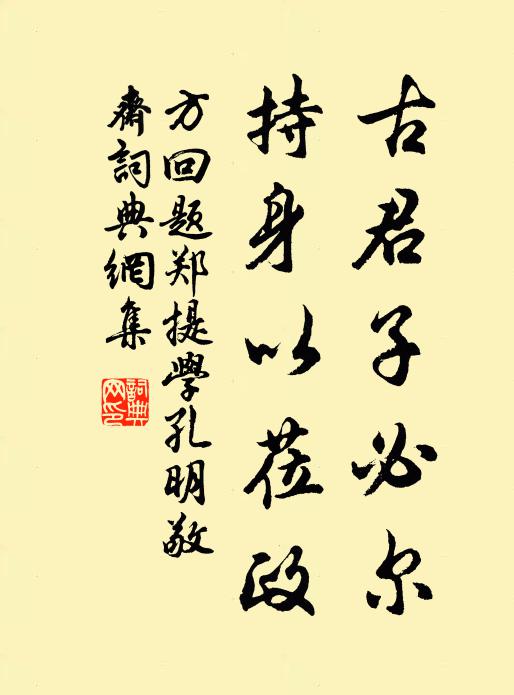 古君子必尔
持身以莅政
方回题郑提学孔明敬
斋词典網集
詞典
网印